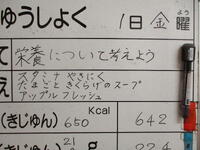 ゅうしょく 1日 金曜
よう
て 栄養について考えよう
え スタミナやきにく
たまごときくらげのスープ
アップルフレッシュ
Kcal
(きじゅん) 650 642
(きじゅん) 21 22.4
g